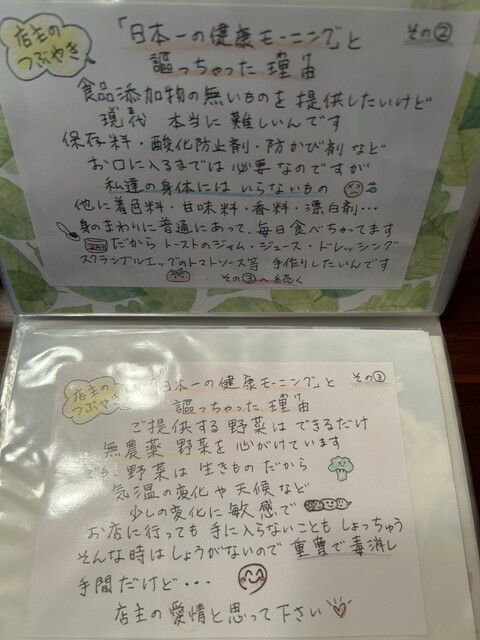 店主の
つぶやき
「日本一の健康モーニング」と
その②
謳っちゃった理由
食品添加物の無いものを提供したいけど
現代 本当に難しいんです
保存料・酸化防止剤・防かび剤など
お口に入るまでは必要なのですが
私達の身体にはいらないもの
他に着色料・甘味料・香料・漂白剤・・・
身のまわりに普通にあって、毎日食べちゃってます
だからトーストのジャム・ジュース・ドレッシング
スクランブルエッグのトマトソース等 手作りしたいんです
その③へ続く
店主の
つぶやき
「日本一の健康モーニング」と
その③
謳っちゃった理由
でご提供する野菜はできるだけ
無農薬 野菜を心がけています
野菜は生きものだから
気温の変化や天候など
少しの変化に敏感で
お店に行っても手に入らないこともしょっちゅう
そんな時はしょうがないので重曹で毒消し
手間だけど・・・
店主の愛情と思って下さい